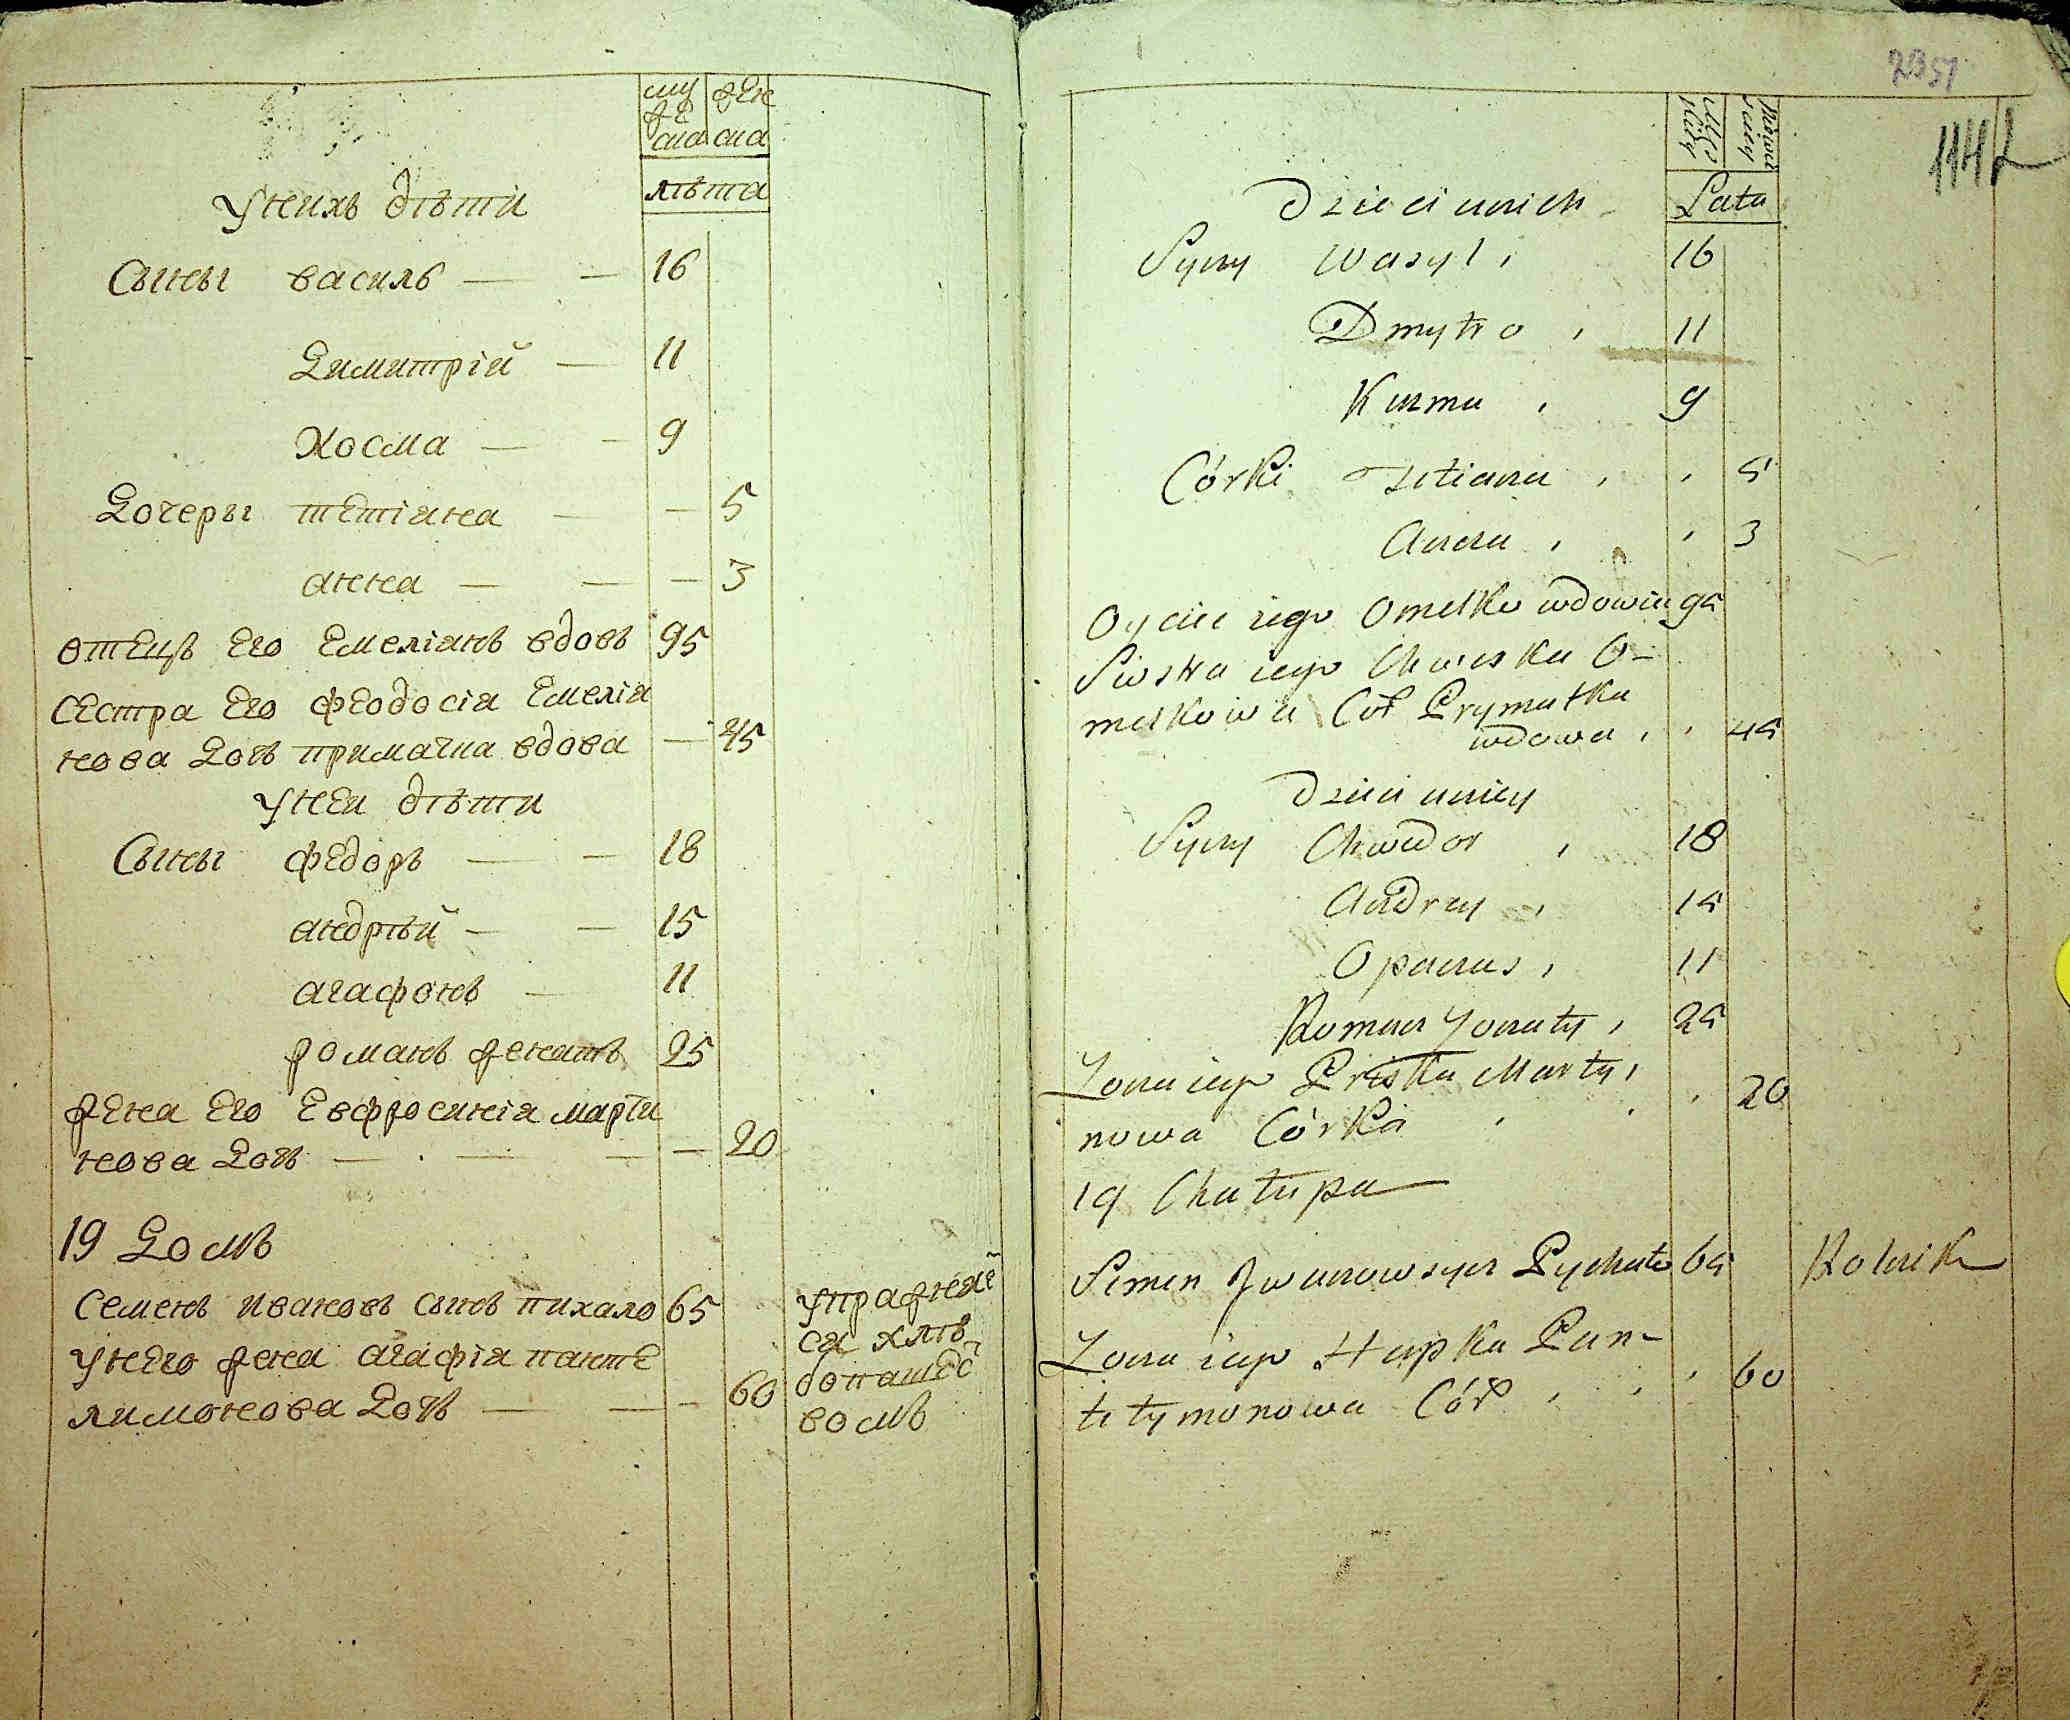 муже
ска
жен
ска
лѣта
У нихъ дѣти
Сыны василь — — 16
Димитрій — 11
Косма — — 9
Дочеры тетіана — — 5
анна — — — 3
отецъ его емеліанъ вдовъ 95
сестра его феодосіа емеліа
нова дочь примачка вдова — 45
У неи дѣти
Сыны федоръ — — 18
андрѣй — — 15
агафонъ — 11
романъ женатъ 25
жена его евфросиніа марти
нова дочь — — — — 20
19 Домъ
Семенъ ивановъ сынъ пихало 65
у него жена агафіа панте
лимонова дочь — — — 60
упражнае
са хлѣ
бопашес
вомъ
2351
1142
Męs
kiey
Lata
Dzieci u nich
Syny Wasyl 16
Dmytro 11
Kuzma 9
Córki Tetiana 5
Anna 3
Oyciec iego Omelko wdowiec 95
Siostra iego Chweska O-
melkowa Cór Prymaczka
wdowa 45
Dzieci u niey
Syny Chwedor 18
Andrey 15
Opanas 11
Roman Żonaty 25
Żona iego Priska Marty
nowa Córka 20
19 Chałupa
Semen Jwanow syn Pychało 65 Rolnik
Żona iego Hapka Pan-
tełymonowa Cór 60